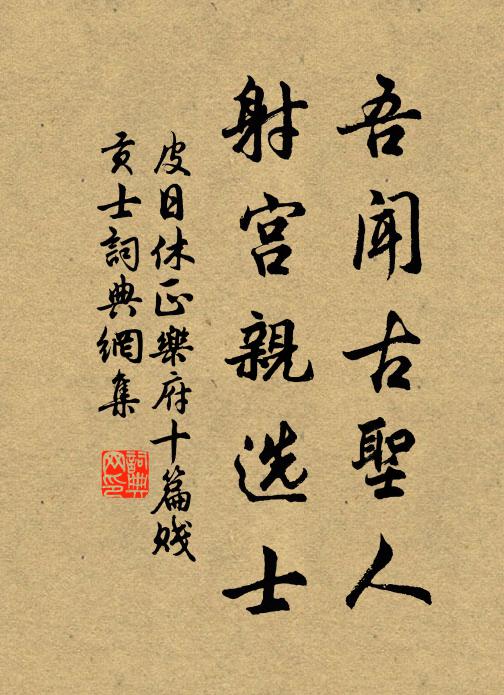 吾闻古聖人
射宫親选士
皮日休正樂府十篇賤
貢士詞典網集
詞典
网印